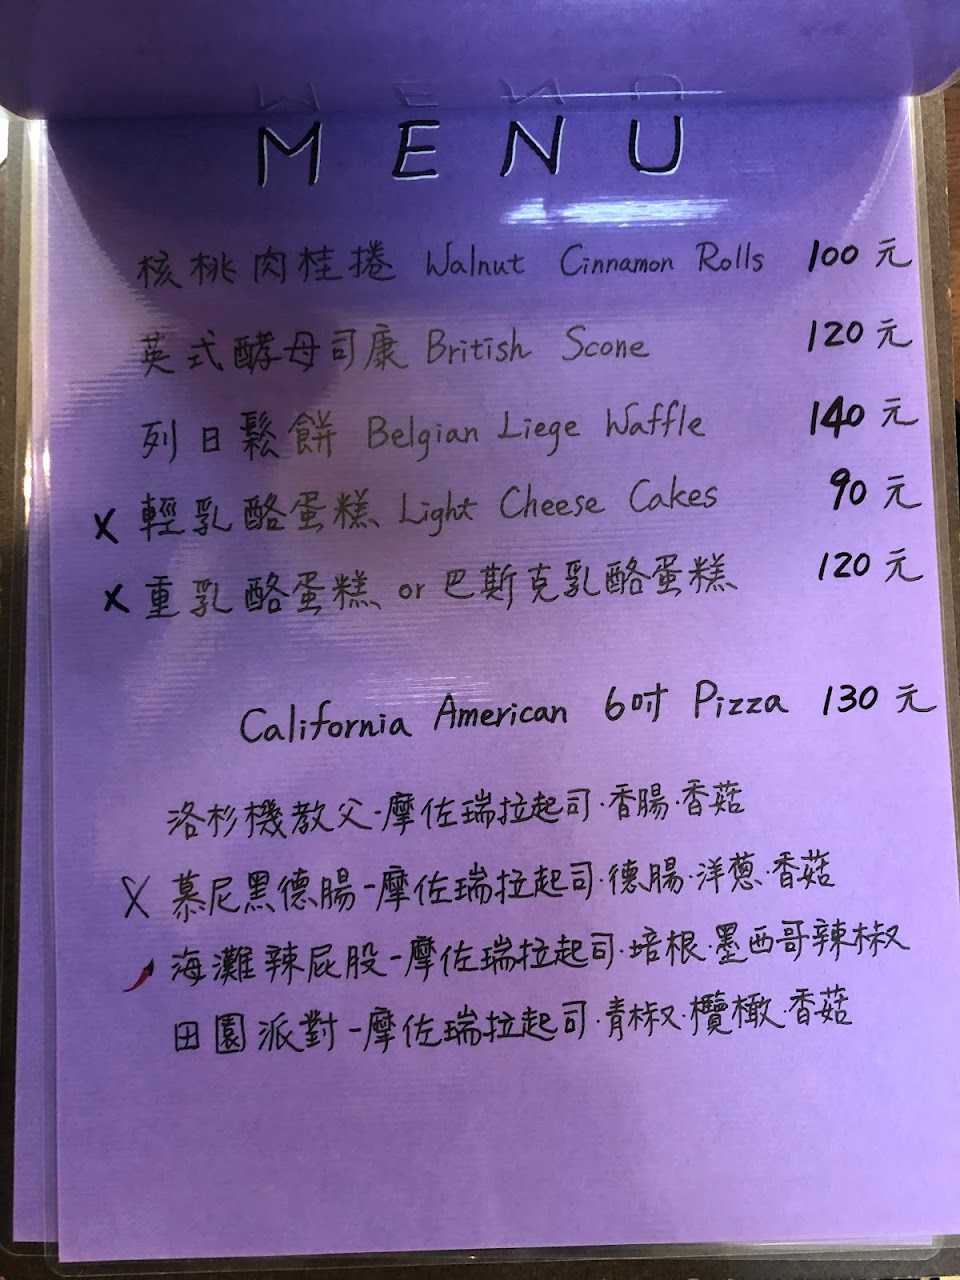 MENU
核桃肉桂捲 Walnut Cinnamon Rolls 100元
英式酵母司康 British Scone 120元
列日鬆餅 Belgian Liege Waffle 140元
X 輕乳酪蛋糕 Light Cheese Cakes 90元
X 重乳酪蛋糕 or 巴斯克乳酪蛋糕 120元
California American 6吋 Pizza 130元
洛杉機教父-摩佐瑞拉起司·香腸·香菇
X 慕尼黑德腸-摩佐瑞拉起司·德腸·洋蔥·香菇
海灘辣屁股-摩佐瑞拉起司·培根·墨西哥辣椒
田園派對-摩佐瑞拉起司·青椒·欖橄·香菇